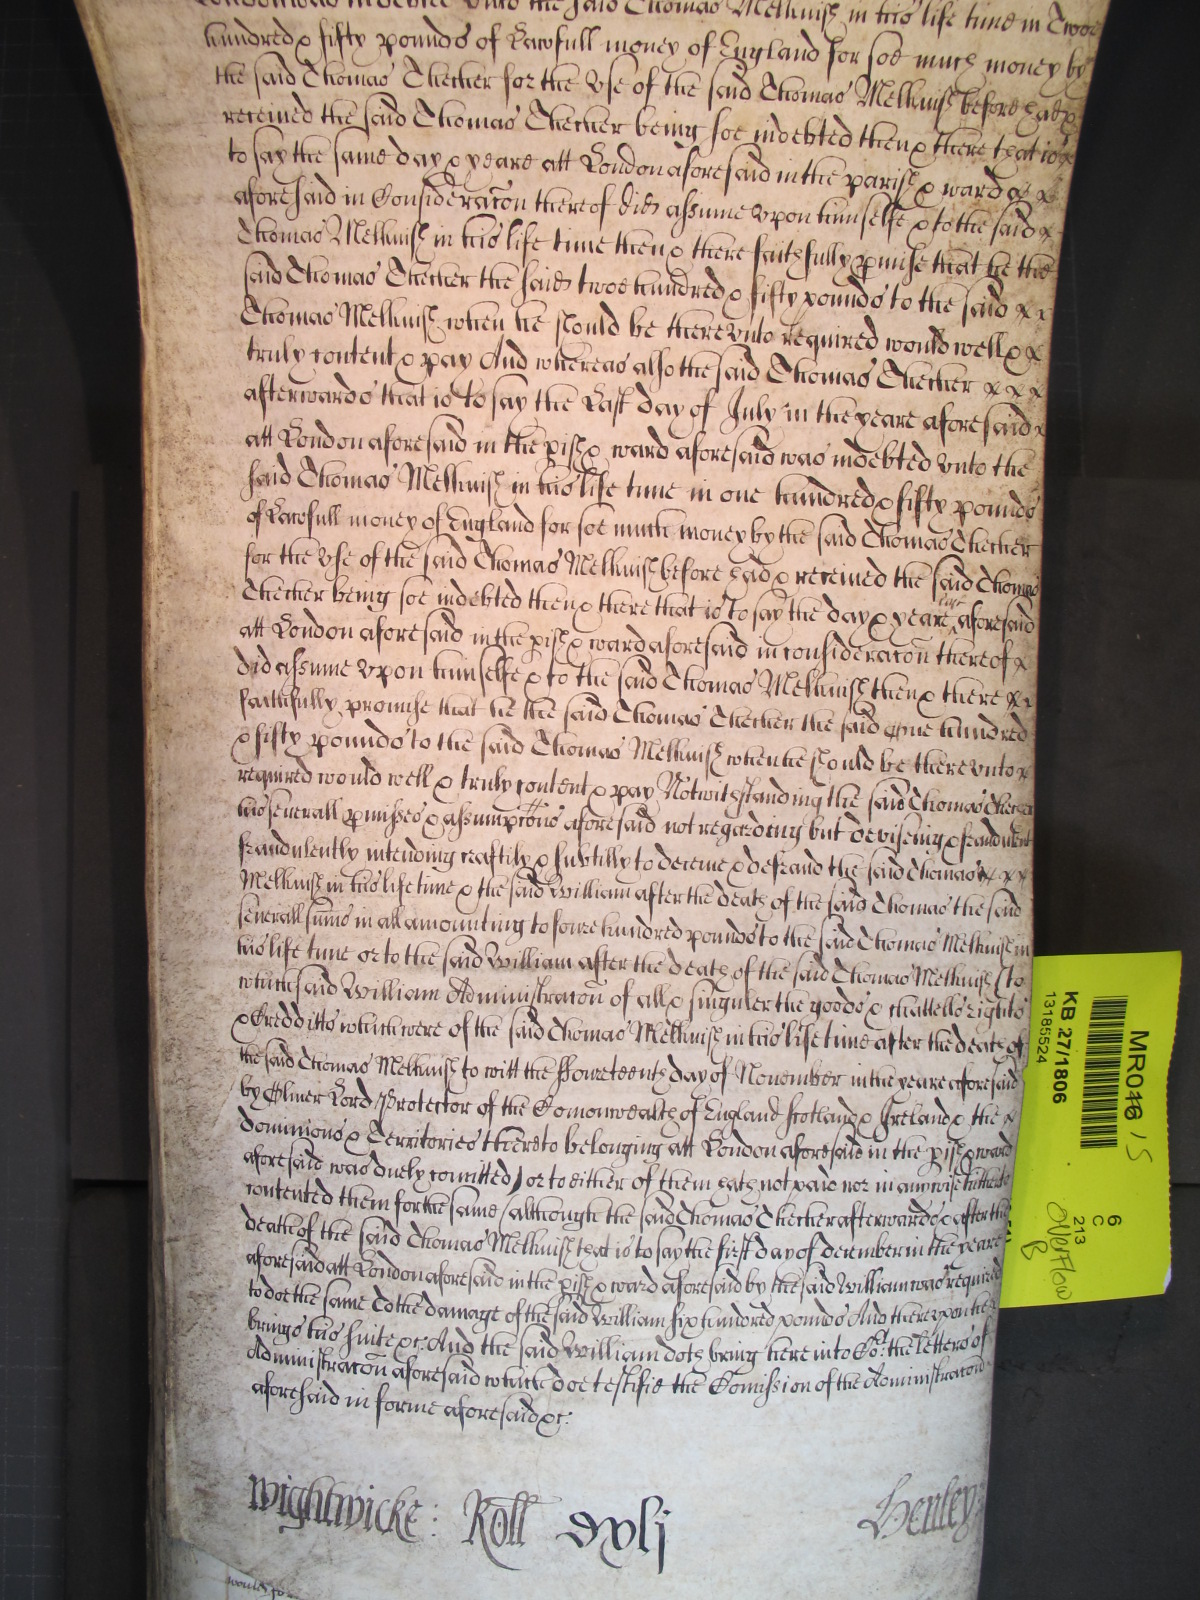 London was indebted vnto the said Thomas Melhuish in his life time in Twoe
hundred & fifty pounds of Lawfull money of England for soe much money by
the said Thomas Checker for the vse of the said Thomas Melhuish before had &
received the said Thomas Checker being soe indebted then & there that is
to say the same day & yeare att London aforesaid in the parish & ward
aforesaid in Consideracon thereof did assume vpon himselfe & to the said
Thomas Melhuish in his life time then & there faithfully pmise that he the
said Thomas Checker the said twoe hundred & fifty pounds to the said
Thomas Melhuish when he should be therevnto required would well &
truly content & pay And whereas also the said Thomas Checker
afterwards that is to say the Last day of July in the yeare aforesaid
att London aforesaid in the pish & ward aforesaid was indebted vnto the
said Thomas Melhuish in his life time in one hundred & fifty pounds
of Lawfull money of England for soe much money by the said Thomas Checker
for the vse of the said Thomas Melhuish before had & received the said Thomas
Checker being soe indebted then & there that is to say the day & yeare last aforesaid
att London aforesaid in the pish & ward aforesaid in consideracon thereof
did assume vpon himselfe & to the said Thomas Melhuish then & there
faithfully promise that he the said Thomas Checker the said One hundred
& fifty pounds to the said Thomas Melhuish when he should be therevnto
required would well & truly content & pay Notwithstanding the said Thomas Checker
his severall pmisses & assumptions aforesaid not regarding but deviseing & fraudulent
fraudulently intending craftily & subtilly to deceive & defraud the said Thomas
Melhuish in his life time & the said William after the death of the said Thomas the said
severall sums in all amounting to foure hundred pounds to the said Thomas Melhuish in
his life time or to the said William after the death of the said Thomas Melhuish (to
which said William Administracon of all & singuler the goods & chattells rights
& Credditts which were of the said Thomas Melhuish in his life time after the death of
the said Thomas Melhuish to witt the ffoureteenth day of November in the yeare aforesaid
by Oliver Lord Protector of the Comonwealth of England Scotland & Ireland & the
dominions & Territories thereto belonging att London aforesaid in the pish & ward
aforesaid was duely comitted) or to either of them hath not paid nor in any wise hitherto
contented them for the same (although the said Thomas Checker afterwards & after the
death of the said Thomas Melhuish that is to say the first day of december in the yeare
aforesaid att London aforesaid in the pish & ward aforesaid by the said William was required
to doe the same To the damage of the said William six hundred pounds And therevpon he
brings his suite &c: And the said William doth bring here into Cort the letters of
Administracon aforesaid which doe testifie the Comission of the Administracon
aforesaid in forme aforesaid &c:
Wightwicke: Roll
Henley
would
MR04 / 5
KB 27/1806
13185524
6
C
213
Overflow
B